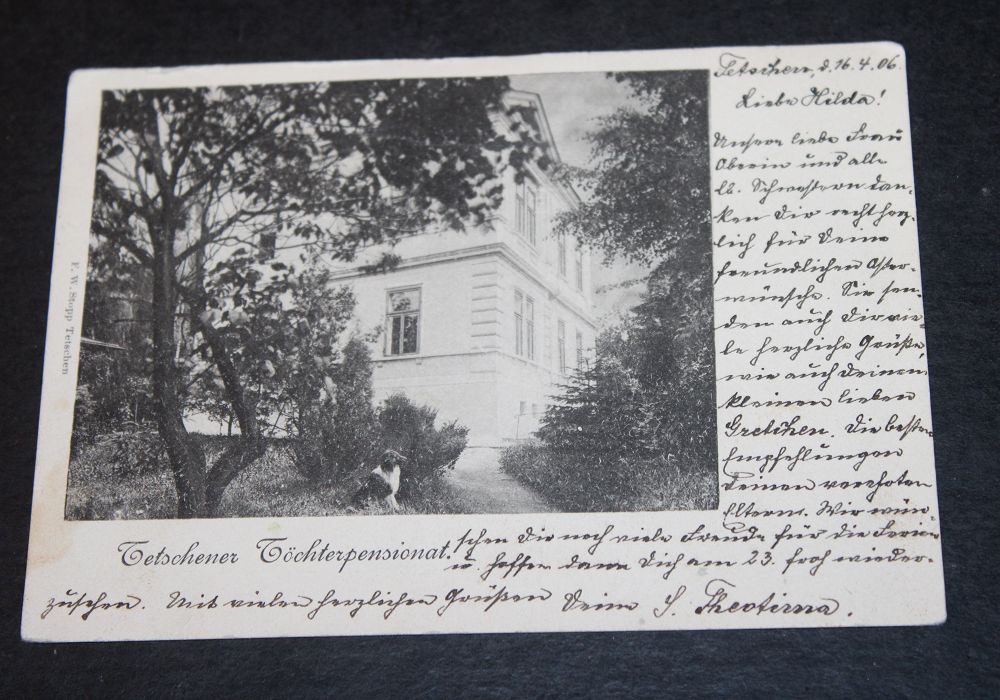 Tetschen, d. 16.4.06.
Liebe Hilda!
Unsere liebe Frau
Oberin und alle
lb. Schwestern dan-
ken Dir recht herz-
lich für Deine
freundlichen Oster-
wünsche. Sie sen-
den auch Dir vie-
le herzliche Grüße,
wie auch Deinem
kleinen lieben
Gretchen. Die besten
Empfehlungen
Deinen verehrten
Eltern. Wir wün-
schen Dir noch viele Freude für die Ferien
u. hoffen dann Dich am 23. froh wieder-
zusehen. Mit vielen herzlichen Grüßen Deine S. Theotima.
Tetschener Töchterpensionat.
F. W. Stopp Tetschen